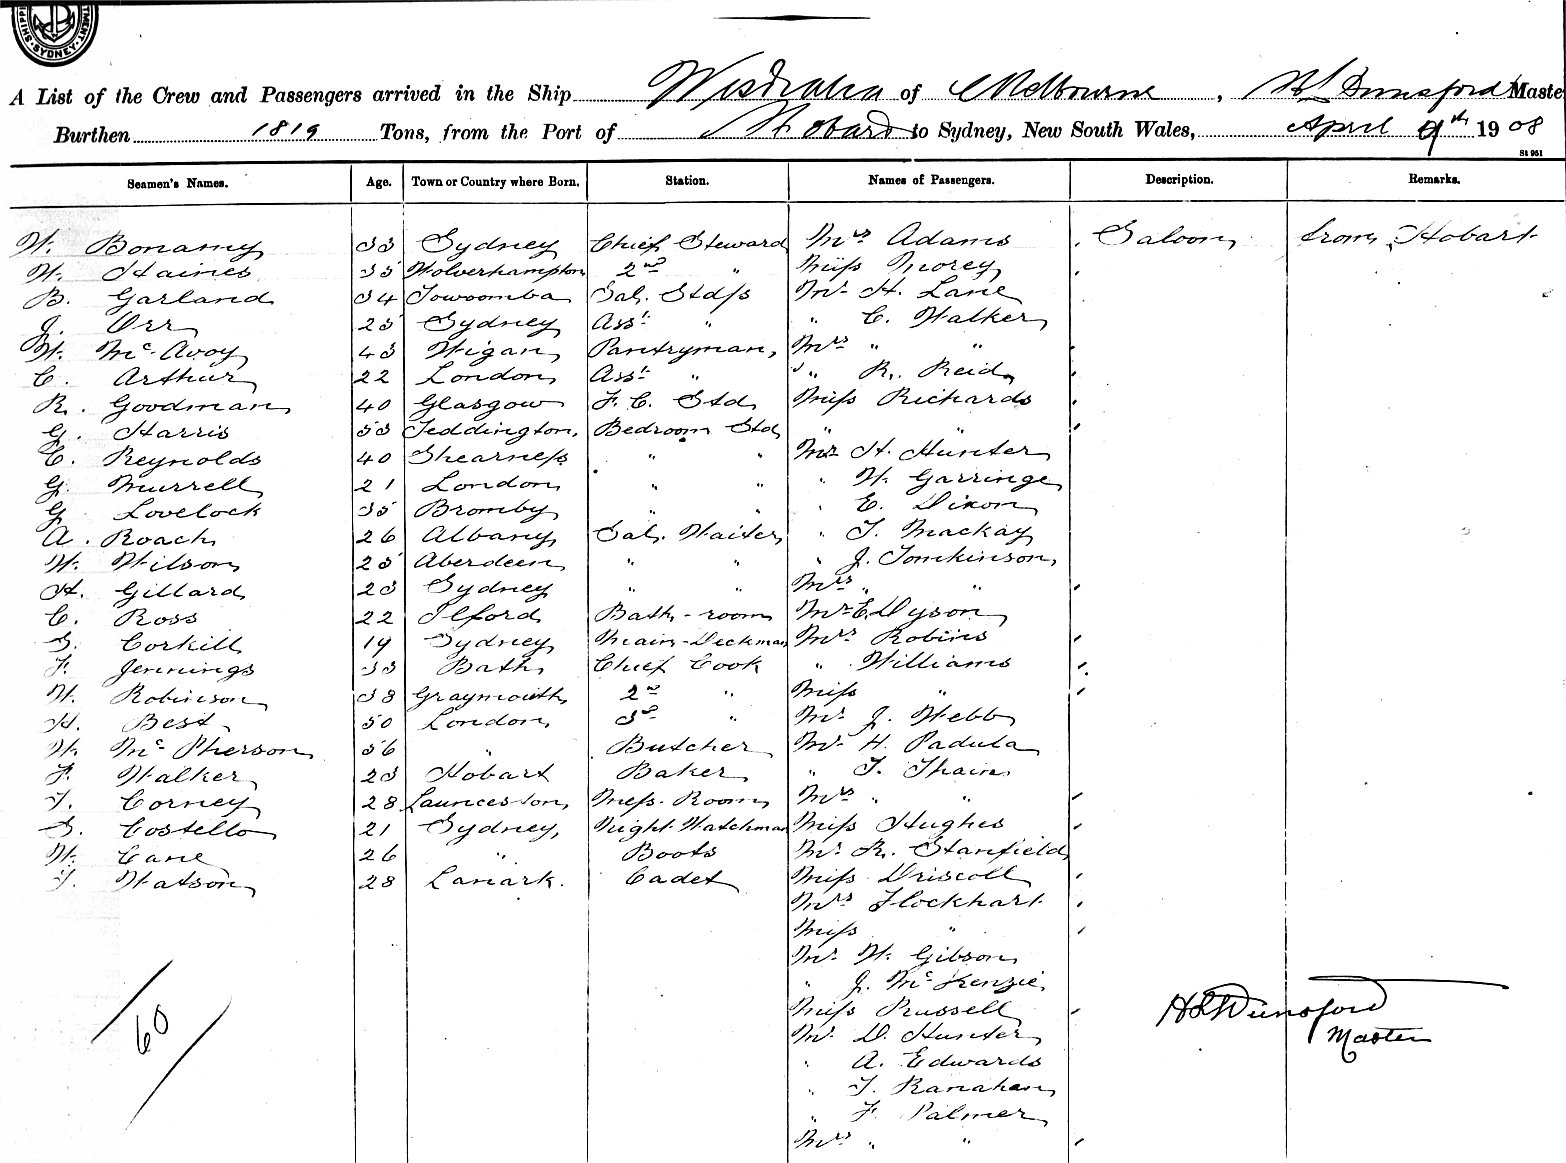 SHIPPI SYDNEY TMENT
A List of the Crew and Passengers arrived in the Ship Westralia of Melbourne, H L Dunsford Maste
Burthen 1819 Tons, from the Port of Hobart to Sydney, New South Wales, April 9th 1908
St 951
Seamen's Names. Age. Town or Country where Born. Station. Names of Passengers. Description. Remarks.
W. Bonamy 33 Sydney Chief Steward Mrs Adams Saloon from Hobart
W. Haines 35 Wolverhampton 2nd " Miss Morey
B. Garland 34 Towoomba Sal. Stdss Mr H. Lane
J. Orr 25 Sydney Asst " " C. Walker
W. McAvoy 43 Wigan Pantryman Mrs " "
C. Arthur 22 London Asst " " R. Reid
R. Goodman 40 Glasgow F. C. Std Miss Richards
G. Harris 33 Teddington Bedroom Std " "
C. Reynolds 40 Shearness " " Mr H. Hunter
G. Murrell 21 London " " " W. Garringe
G. Lovelock 35 Bromby " " " E. Dixon
A. Roach 26 Albany Sal. Waiter " T. Mackay
W. Wilson 25 Aberdeen " " " J. Tomkinson
H. Gillard 23 Sydney " " Mrs " "
C. Ross 22 Ilford Bath-room Mr E. Dyson
S. Corkill 19 Sydney Main-Deckman Mrs Robins
F. Jennings 33 Bath Chief Cook " Williams
W. Robinson 38 Graymouth 2nd " Miss "
H. Best 50 London 3d " Mr J. Webb
W. McPherson 56 " Butcher Mr H. Padula
F. Walker 23 Hobart Baker " T. Thain
T. Corney 28 Launceston Mess. Room Mrs " "
S. Costello 21 Sydney, Night Watchman Miss Hughes
W. Cane 26 " Boots Mr R. Stanfield
T. Watson 28 Lanark. Cadet Miss Driscoll
Mrs Flockhart
Miss "
Mr W. Gibson
" J. McKenzie
Miss Russell
Mr D. Hunter
" A. Edwards
" T. Ranahan
" F. Palmer
Mrs " "
60
H L Dunsford
Master